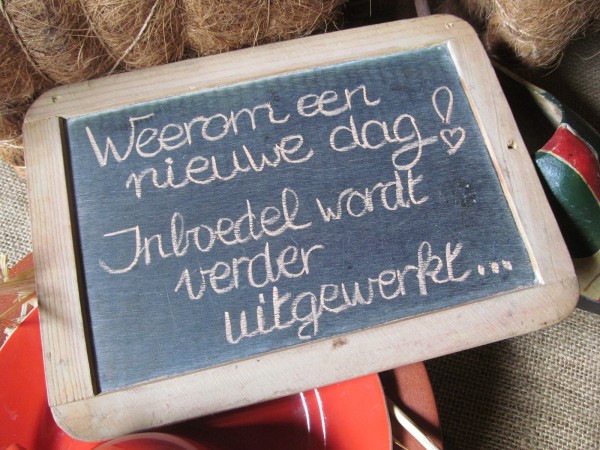 Weerom een
nieuwe dag!
Inboedel wordt
verder
uitgewerkt...